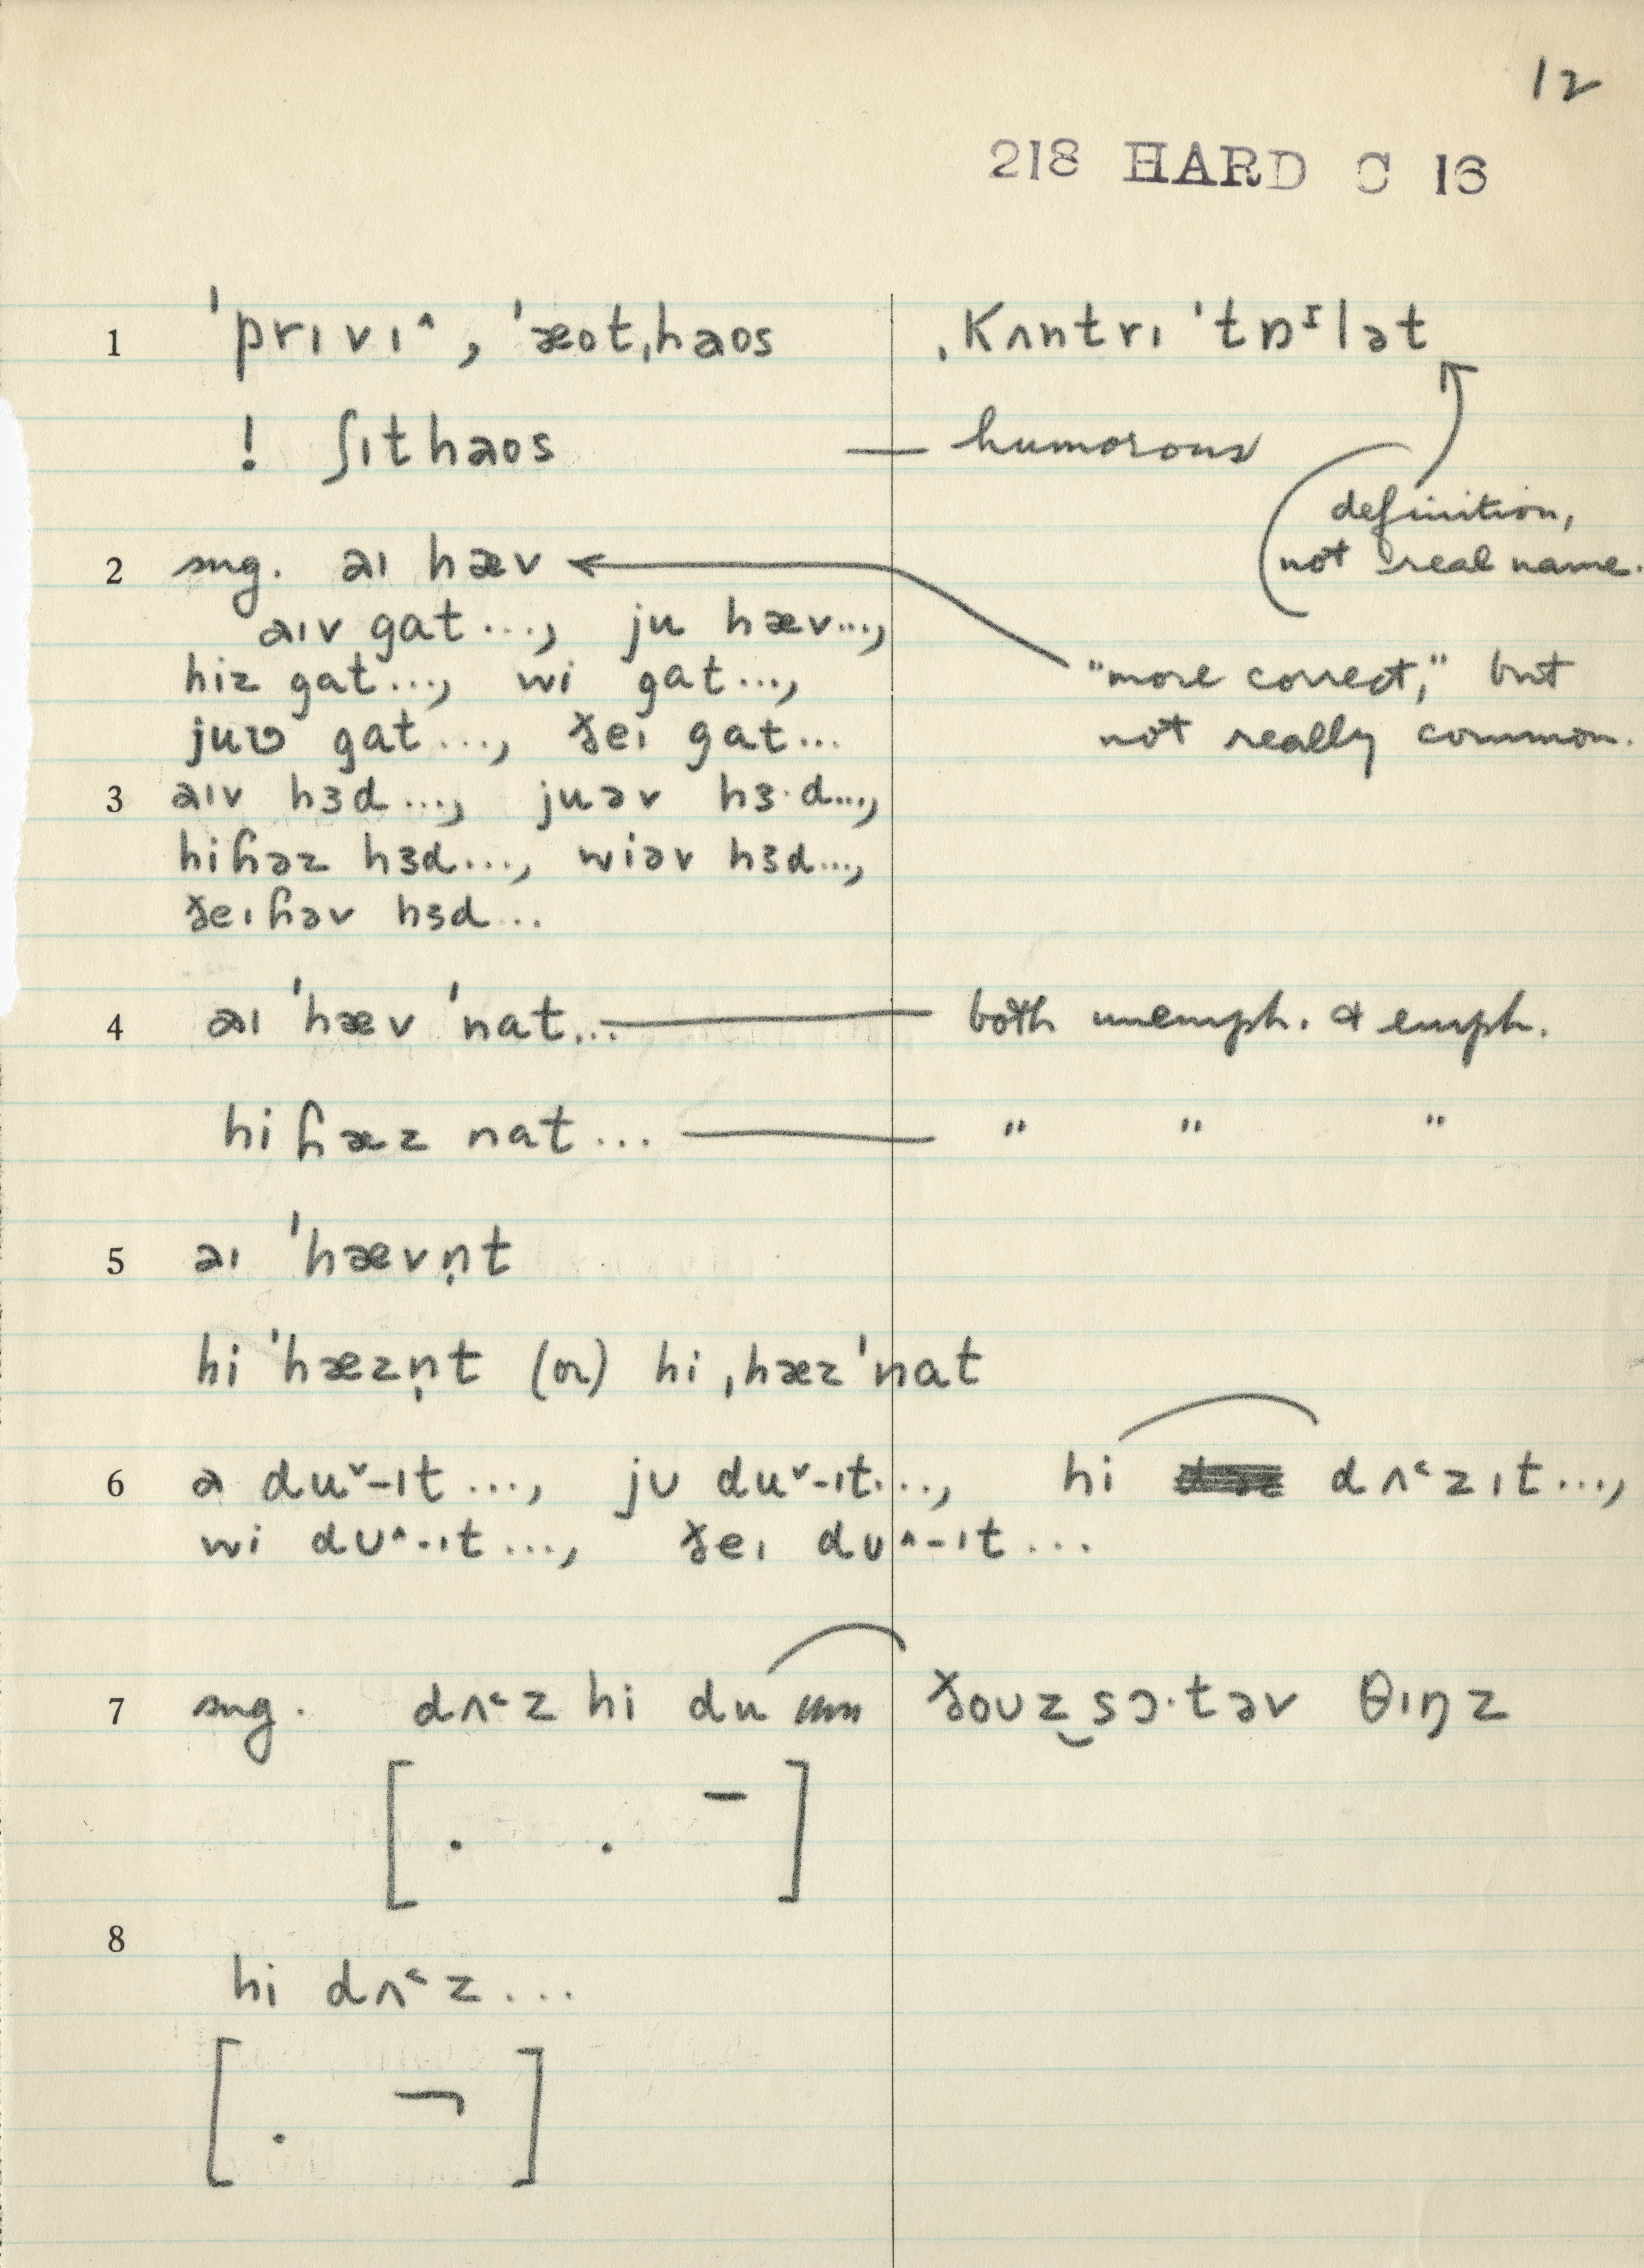 12
218 HARD C 16
1 ˈprɪvɪ^, ˈæotˌhaos ˌkʌntrɪ ˈtɒᶦlət
! ʃɪthaos — humorous
definition,
not real name.
2 sug. aɪ hæv
aɪv gat..., ju hæv...,
hiz gat..., wi gat...,
"more correct," but
juʊ gat..., ðeɪ gat...
not really common.
3 aɪv hɜd..., juəv hɜ·d...,
hiɦəz hɜd..., wiəv hɜd...,
ðeɪɦəv hɜd...
4 aɪ ˈhæv ˈnat... — both unemph. & emph.
hi ɦæz nat... — " " "
5 aɪ ˈhævn̩t
hi ˈhæzn̩t (or) hi ˌhæzˈnat
6 a duˇ-ɪt..., jʊ duˇ-ɪt..., hi dʌ˂zɪt...,
wi dʊ^-ɪt..., ðeɪ dʊ^-ɪt...
7 sug. dʌ˂z hi du ðoʊz̬sɔ·təv θɪŋz
[ . . – ]
8
hi dʌ˂z...
[ . ¬ ]